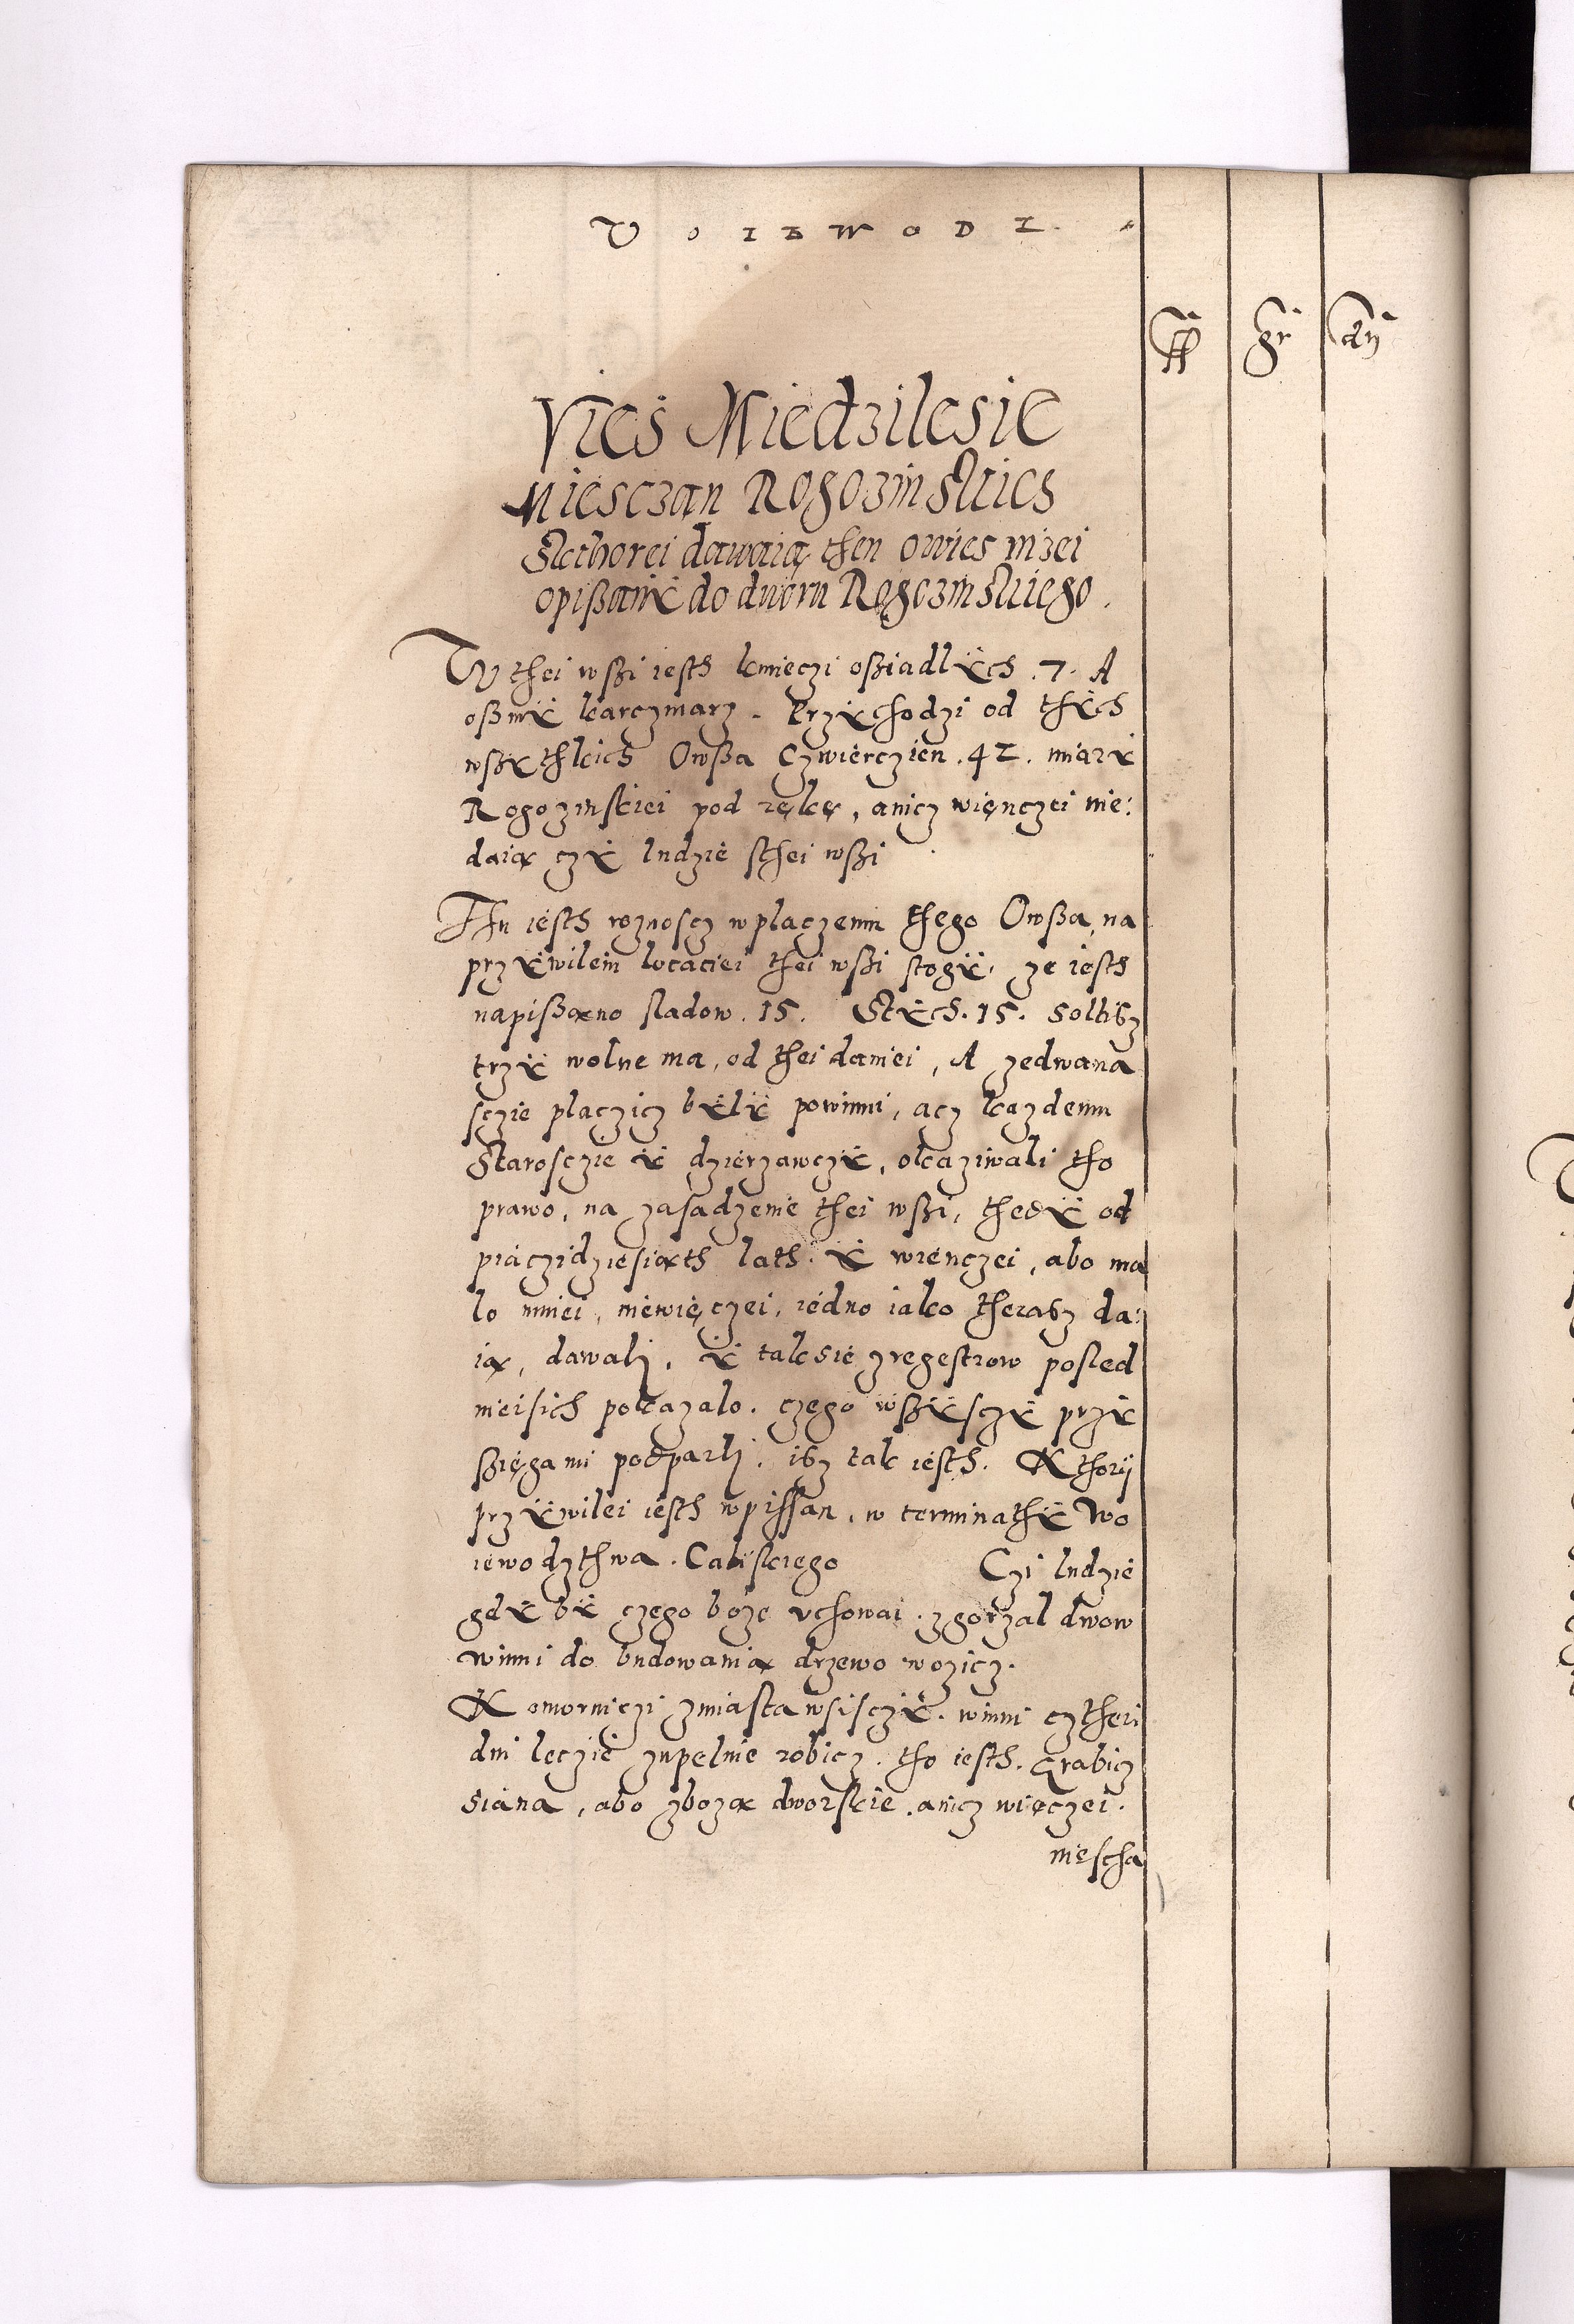 VOIEWODZ.
ff gr dn
Vieś Miedzilesie
Miesczan Rogozinskich
Skthorei dawaią then owies nizei
opißany do dworu Rogozinskiego.
W thei wßi iesth kmieczi oßiadlÿch .7. A
oßmÿ karczmarz. Przychodzi od thÿch
wßÿthkich Owßa Czwierczien .42. miarÿ
Rogozinskiei pod rękę, anicz wienczei nie:
daią czÿ ludzie sthei wßi
Thu iesth roznoscz wplaczeniu thego Owßa, na
przÿwileiu locaciei thei wßi stogÿ, ze iesth
napißano sladow .15. Stÿch .15. Soltisz
trzÿ wolne ma, od thei daniei, A zedwana
sczie placzicz bÿlÿ powinni, acz kazdemu
Starosczie ÿ dzierzawczÿ, okaziwali tho
prawo, na zasadzenie thei wßi, thedÿ od
piączidziesiąth lath. ÿ wienczei, abo ma
lo mniei, niewięczei, iedno iako therasz da:
ią, dawalj, ÿ taksie zregestrow posled
nieisich pokazalo. czego wßÿsczÿ przÿ
ßięgami podparlj. isz tak iesth. Kthorÿ
przÿwilei iesth wpissan, w terminathÿ Wo
iewodzthwa. Caliskiego Czi ludzie
gdÿ bÿ czego boze uchowai. zgorzal dwow
winni do budowania drzewo wozicz.
Komorniczi zmiasta wsisczÿ. winni cztheri
dni leczie zupelnie robicz. tho iesth. Grabicz
siana, abo zboza dworskie. anicz więczei.
niescha